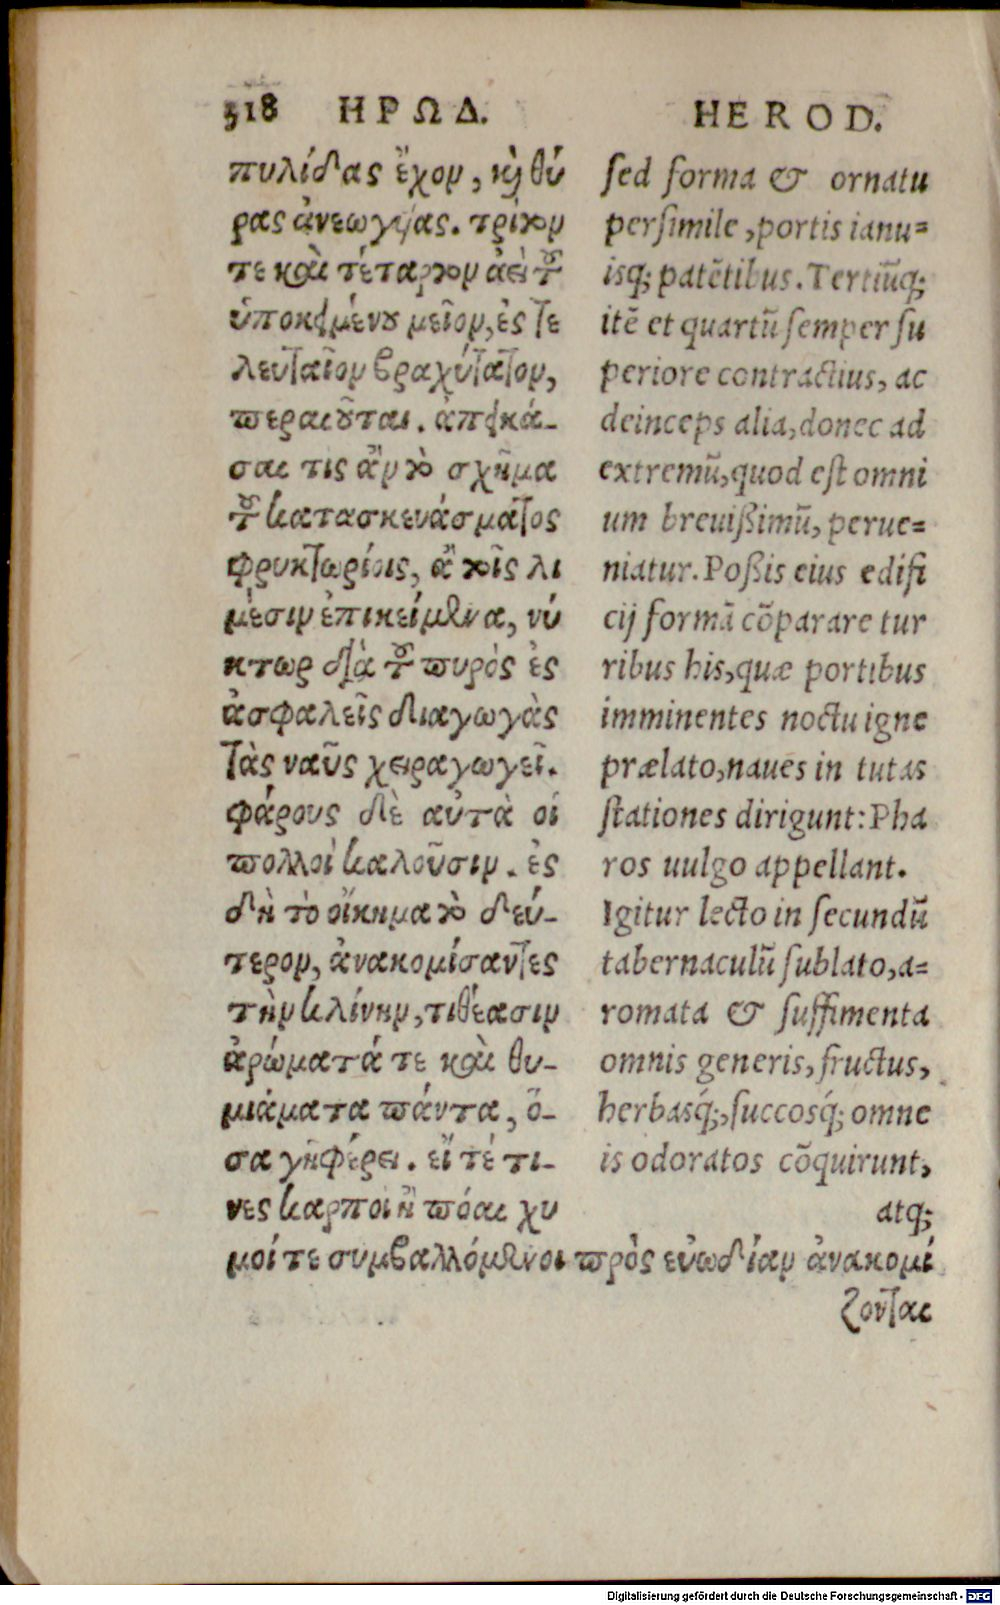 318 ΗΡΩΔ.
πυλίδας ἔχον, καὶ θύ
ρας ἀνεωγυίας. τρίτον
τε καὶ τέταρτον ἀεὶ τοῦ
ὑποκειμένου μεῖον, ἐς τε
λευταῖον βραχύτατον,
περαιοῦται. ἀπεικά-
σαι τις ἂν τὸ σχῆμα
τοῦ κατασκευάσματος
φρυκτωρίοις, ἃ τοῖς λι
μέσιν ἐπικείμενα, νύ
κτωρ διὰ τοῦ πυρὸς ἐς
ἀσφαλεῖς διαγωγὰς
τὰς ναῦς χειραγωγεῖ.
φάρους δὲ αὐτὰ οἱ
πολλοὶ καλοῦσιν. ἐς
δὴ τὸ οἴκημα τὸ δεύ-
τερον, ἀνακομίσαντες
τὴν κλίνην, τιθέασιν
ἀρώματά τε καὶ θυ-
μιάματα πάντα, ὅ-
σα γῆ φέρει. εἴ τέ τι-
νες καρποὶ ἢ πόαι χυ
μοί τε συμβαλλόμενοι πρὸς εὐωδίαν ἀνακομί
ζονται
HEROD.
sed forma & ornatu
persimile, portis ianu=
isq; patētibus. Tertiūq;
itē et quartū semper su
periore contractius, ac
deinceps alia, donec ad
extremū, quod est omni
um breuißimū, perue=
niatur. Poßis eius edifi
cij formā cōparare tur
ribus his, quæ portibus
imminentes noctu igne
prælato, naues in tutas
stationes dirigunt: Pha
ros uulgo appellant.
Igitur lecto in secundū
tabernaculū sublato, a=
romata & suffimenta
omnis generis, fructus,
herbasq́;, succosq́; omne
is odoratos cōquirunt,
atq;
Digitalisierung gefördert durch die Deutsche Forschungsgemeinschaft - DFG